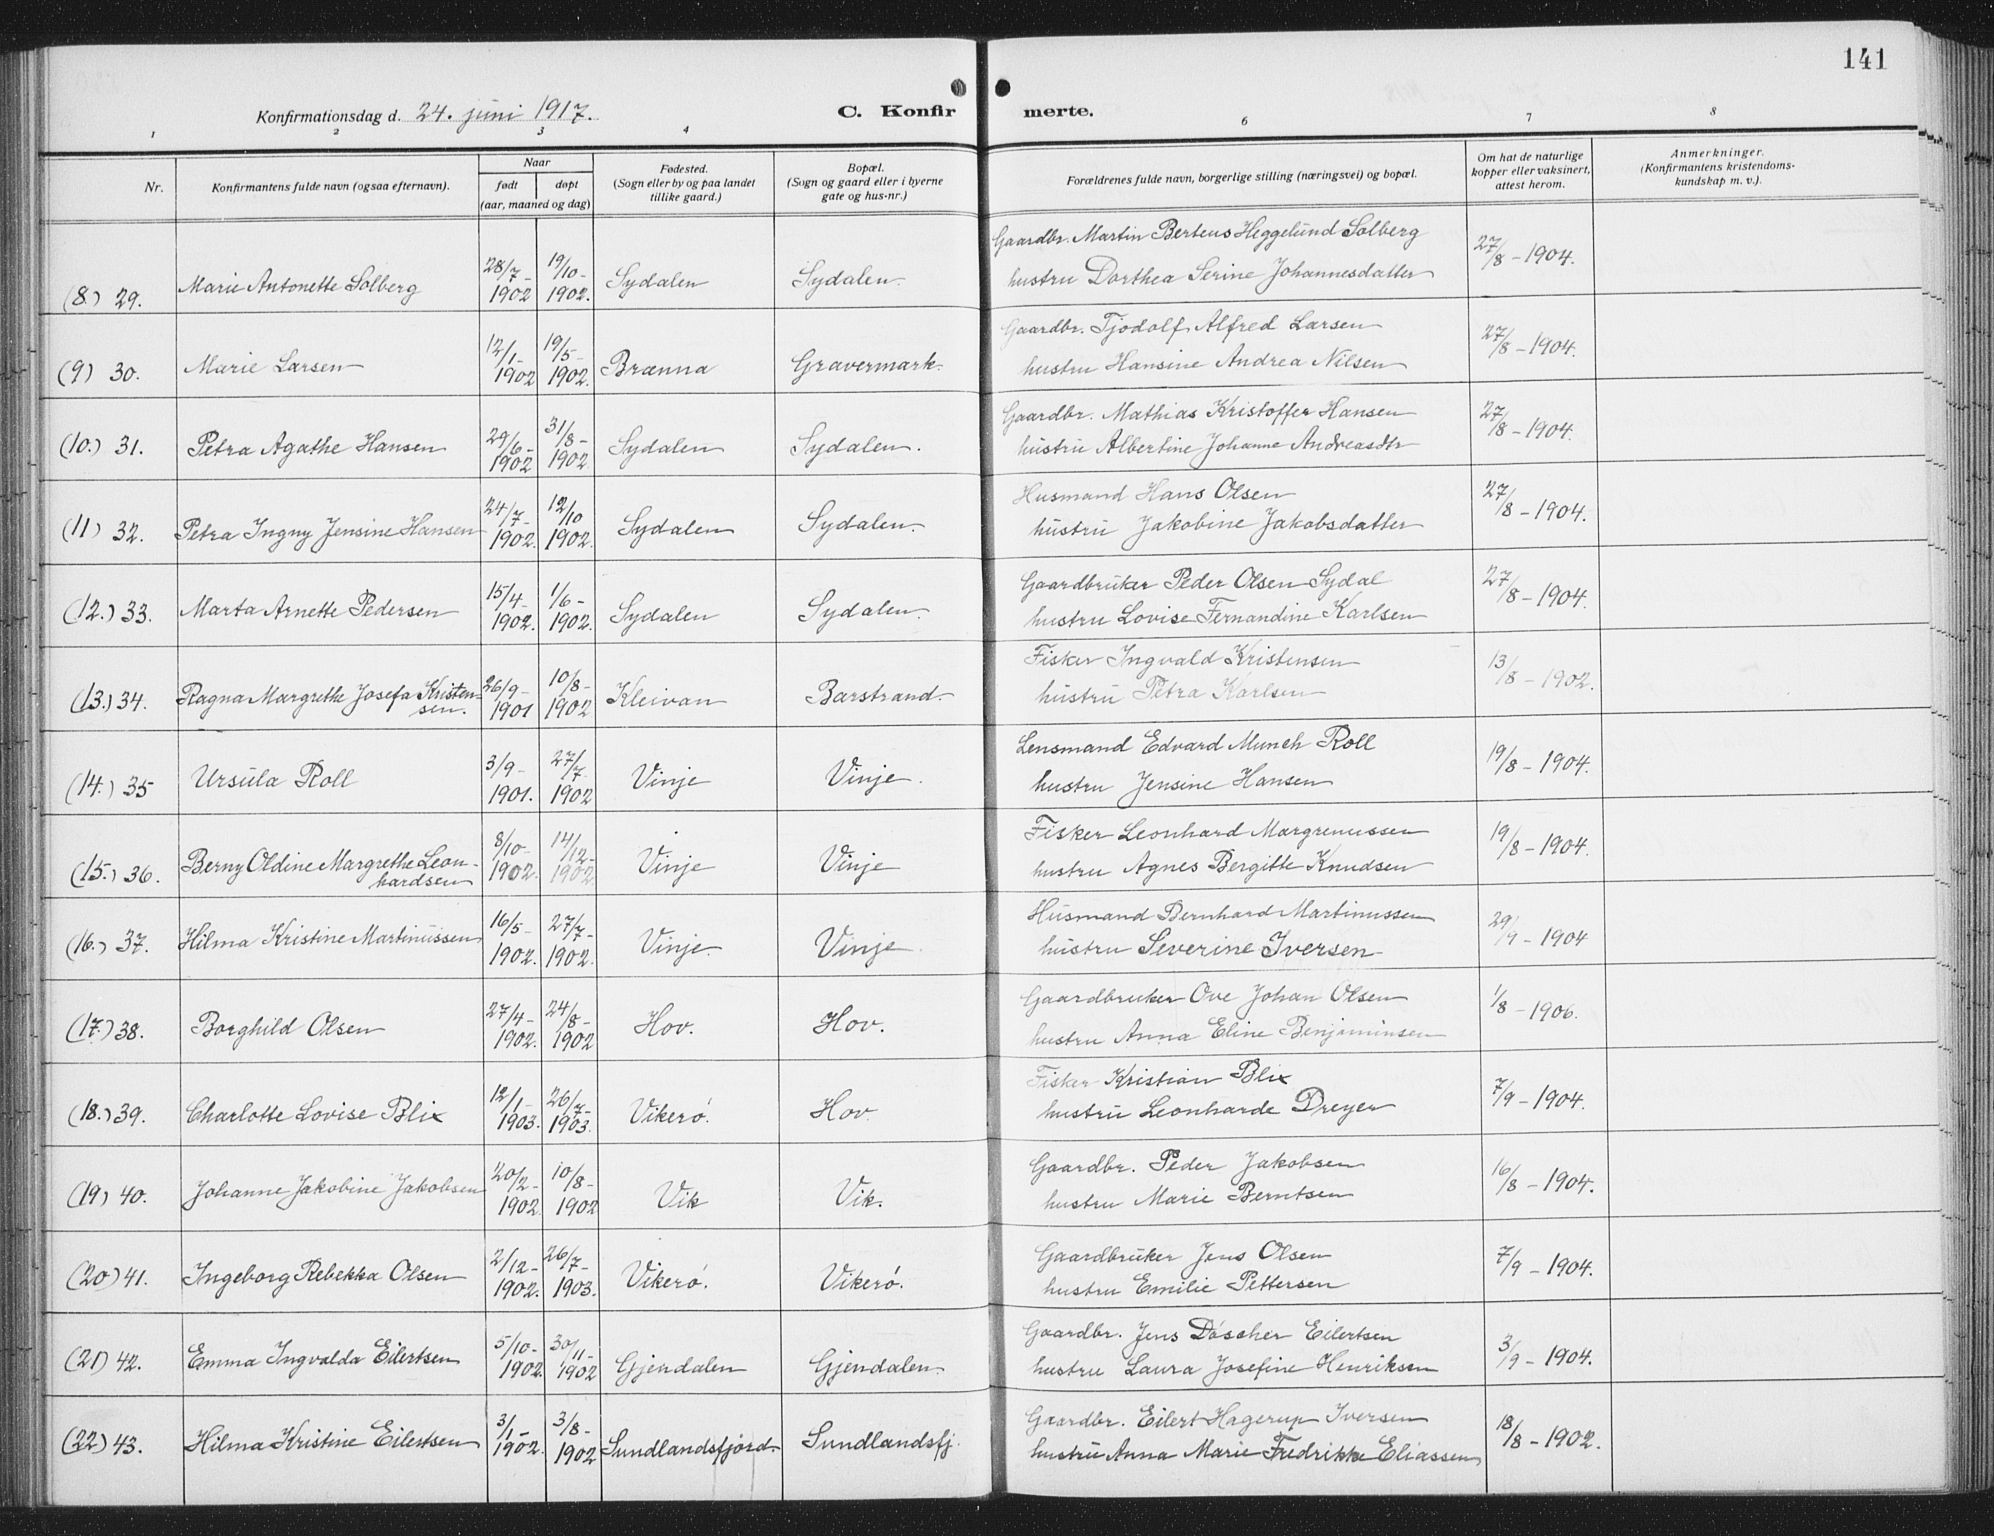 141
Konfirmationsdag d. 24. juni 1917.
C. Konfirmerte.
1 2 3 4 6 7 8
Nr.
Konfirmantens fulde navn (ogsaa efternavn).
Naar
født døpt
(aar, maaned og dag)
Fødested.
(Sogn eller by og paa landet
tillike gaard.)
Bopæl.
(Sogn og gaard eller i byerne
gate og hus-nr.)
Forældrenes fulde navn, borgerlige stilling (næringsvei) og bopæl.
Om hat de naturlige
kopper eller vaksinert,
attest herom.
Anmerkninger.
(Konfirmantens kristendoms-
kundskap m. v.).
(8.) 29. Marie Antonette Solberg 28/7-1902 19/10-1902. Sydalen Sydalen. Gaardbr. Martin Berteus Heggelund Solberg 27/8-1904.
hustru Dorthea Serine Johannesdatter
(9) 30. Marie Larsen 12/1-1902 19/5-1902. Brænna Gravermark. Gaardbr. Tjodolf Alfred Larsen 27/8-1904.
hustru Hansine Andrea Nilsen
(10.) 31. Petra Agathe Hansen 29/6-1902 31/8-1902 Sydalen Sydalen. Gaardbr. Mathias Kristoffer Hansen 27/8-1904.
hustru Albertine Johanne Andreasdtr
(11) 32. Petra Ingny Jensine Hansen 24/7-1902. 12/10 1902. Sydalen Sydalen. Husmand Hans Olsen 27/8-1904.
hustru Jakobine Jakobsdatter
(12.) 33. Marta Arnette Pedersen 15/4-1902. 1/6-1902. Sydalen Sydalen. Gaardbruker Peder Olsen Sydal 27/8-1904.
hustru Lovise Fernandine Karlsen
(13.) 34. Ragna Margrethe Josefa Kristen-
sen. 26/9-1901 10/8-1902 Kleivan Barstrand. Fisker Ingvald Kristensen 13/8-1902.
hustru Petra Karlsen
(14.) 35 Ursula Roll 3/9-1901. 27/7-1902 Vinje Vinje. Lensmand Edvard Munch Roll 19/8-1904.
hustru Jensine Hansen
(15.) 36. Berny Oldine Margrethe Leon-
hardsen 8/10-1902. 14/12-1902. Vinje Vinje Fisker Leonhard Margrenussen 19/8-1904.
hustru Agnes Bergitte Knudsen
(16.) 37. Hilma Kristine Martinussen 16/5-1902. 27/7-1902. Vinje. Vinje. Husmand Bernhard Martinussen 29/9-1904
hustru Severine Iversen
(17.) 38. Borghild Olsen 27/4-1902. 24/8-1902 Hov. Hov. Gaardbruker Ove Johan Olsen 1/8-1906.
hustru Anna Eline Benjaminsen
(18.) 39. Charlotte Lovise Blix 12/1-1903. 26/7-1903. Vikerö. Hov. Fisker Kristian Blix 7/9-1904.
hustru Leonharde Dreyer
(19) 40. Johanne Jakobine Jakobsen 20/2-1902. 10/8-1902 Vik Vik. Gaardbr. Peder Jakobsen 16/8-1904.
hustru Marie Berntsen
(20) 41. Ingeborg Rebekka Olsen 2/12-1902. 26/7-1903. Vikerö. Vikerö. Gaardbruker Jens Olsen 7/9-1904.
hustru Emilie Pettersen
(21) 42. Emma Ingvalda Eilertsen 5/10-1902. 30/11-1902 Gjendalen Gjendalen. Gaardbr. Jens Döscher Eilertsen 3/9-1904.
hustru Laura Josefine Henriksen
(22) 43. Hilma Kristine Eilertsen 3/1-1902. 3/8-1902 Sundlandsfjord. Sundlandsfj. Gaardbr. Eilert Hagerup Iversen 18/8-1902.
hustru Anna Marie Fredrikke Eliassen